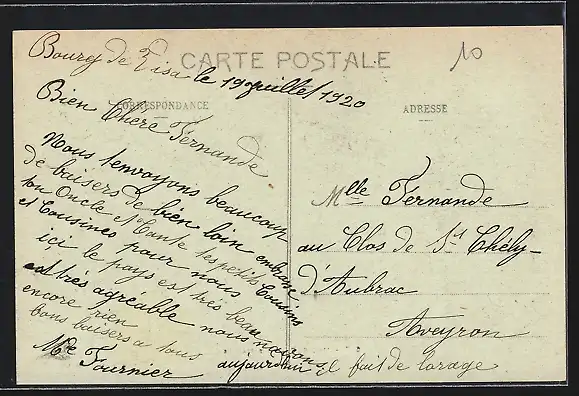 CARTE POSTALE
10
Bourg de Visa le 19 juillet 1920
CORRESPONDANCE
ADRESSE
Bien Chere Fernande
Nous t'envoyons beaucoup
de baisers de bien loin embrase
ton Oncle et Tante les petits Cousins
et Cousines pour nous
ici le pays est très beau
est très agreable nous n'avons
encore rien
bons baisers a tous
Mde Fournier aujourd'hui il fait de l'orage
Mlle Fernande
au Clos de St Chély-
d'Aubrac
Aveyron